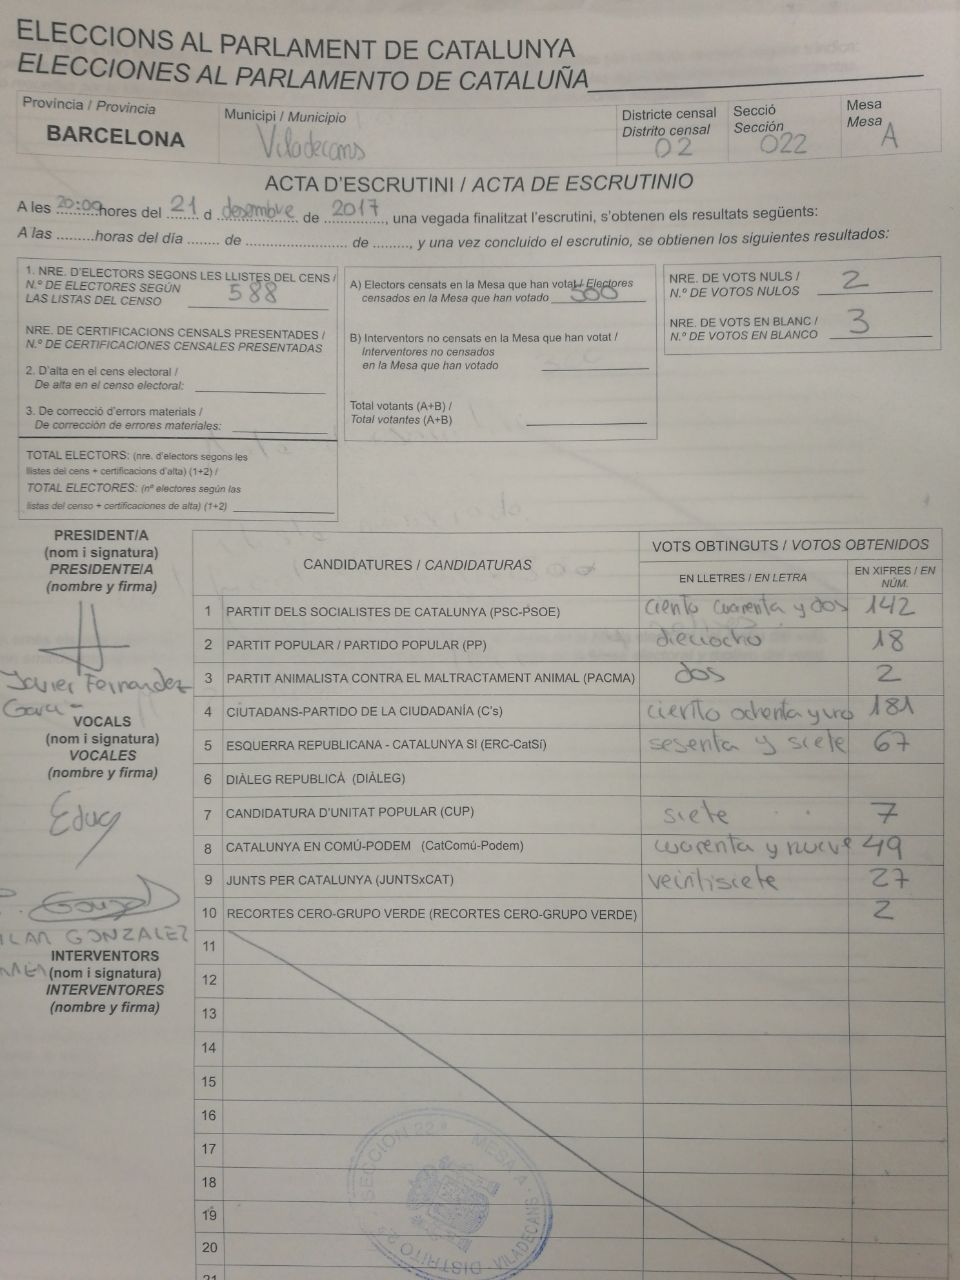 ELECCIONS AL PARLAMENT DE CATALUNYA
ELECCIONES AL PARLAMENTO DE CATALUÑA
Provincia / Provincia
BARCELONA
Municipi / Municipio
Viladecans
Districte censal
Distrito censal
02
Secció
Sección
022
Mesa
Mesa
A
ACTA D'ESCRUTINI / ACTA DE ESCRUTINIO
A les 20:09 hores del 21 d desembre de 2017, una vegada finalitzat l'escrutini, s'obtenen els resultats següents:
A las .........horas del día ....... de ...................... de ........, y una vez concluido el escrutinio, se obtienen los siguientes resultados:
1. NRE. D'ELECTORS SEGONS LES LLISTES DEL CENS /
N.º DE ELECTORES SEGÚN
LAS LISTAS DEL CENSO 588
NRE. DE CERTIFICACIONS CENSALS PRESENTADES /
N.º DE CERTIFICACIONES CENSALES PRESENTADAS
2. D'alta en el cens electoral /
De alta en el censo electoral:
3. De correcció d'errors materials /
De corrección de errores materiales:
TOTAL ELECTORS: (nre. d'electors segons les
llistes del cens + certificacions d'alta) (1+2) /
TOTAL ELECTORES: (nº electores según las
listas del censo + certificaciones de alta) (1+2)
A) Electors censats en la Mesa que han votat / Electores
censados en la Mesa que han votado 500
B) Interventors no censats en la Mesa que han votat /
Interventores no censados
en la Mesa que han votado
Total votants (A+B) /
Total votantes (A+B)
NRE. DE VOTS NULS /
N.º DE VOTOS NULOS 2
NRE. DE VOTS EN BLANC /
N.º DE VOTOS EN BLANCO 3
PRESIDENT/A
(nom i signatura)
PRESIDENTE/A
(nombre y firma)
Javier Fernandez
VOCALS
(nom i signatura)
VOCALES
(nombre y firma)
Gonzal
GONZALEZ
INTERVENTORS
(nom i signatura)
INTERVENTORES
(nombre y firma)
CANDIDATURES / CANDIDATURAS
VOTS OBTINGUTS / VOTOS OBTENIDOS
EN LLETRES / EN LETRA
EN XIFRES / EN
NÚM.
1 PARTIT DELS SOCIALISTES DE CATALUNYA (PSC-PSOE) ciento cuarenta y dos 142
2 PARTIT POPULAR / PARTIDO POPULAR (PP) dieciocho 18
3 PARTIT ANIMALISTA CONTRA EL MALTRACTAMENT ANIMAL (PACMA) dos 2
4 CIUTADANS-PARTIDO DE LA CIUDADANÍA (C's) ciento ochenta y uno 181
5 ESQUERRA REPUBLICANA - CATALUNYA SI (ERC-CatSí) sesenta y siete 67
6 DIÀLEG REPUBLICÀ (DIÀLEG)
7 CANDIDATURA D'UNITAT POPULAR (CUP) siete 7
8 CATALUNYA EN COMÚ-PODEM (CatComú-Podem) cuarenta y nueve 49
9 JUNTS PER CATALUNYA (JUNTSxCAT) veintisiete 27
10 RECORTES CERO-GRUPO VERDE (RECORTES CERO-GRUPO VERDE) 2
11
12
13
14
15
16
17
18
19
20
21
DISTRITO 2 - SECCION 22.ª MESA A - VILADECANS